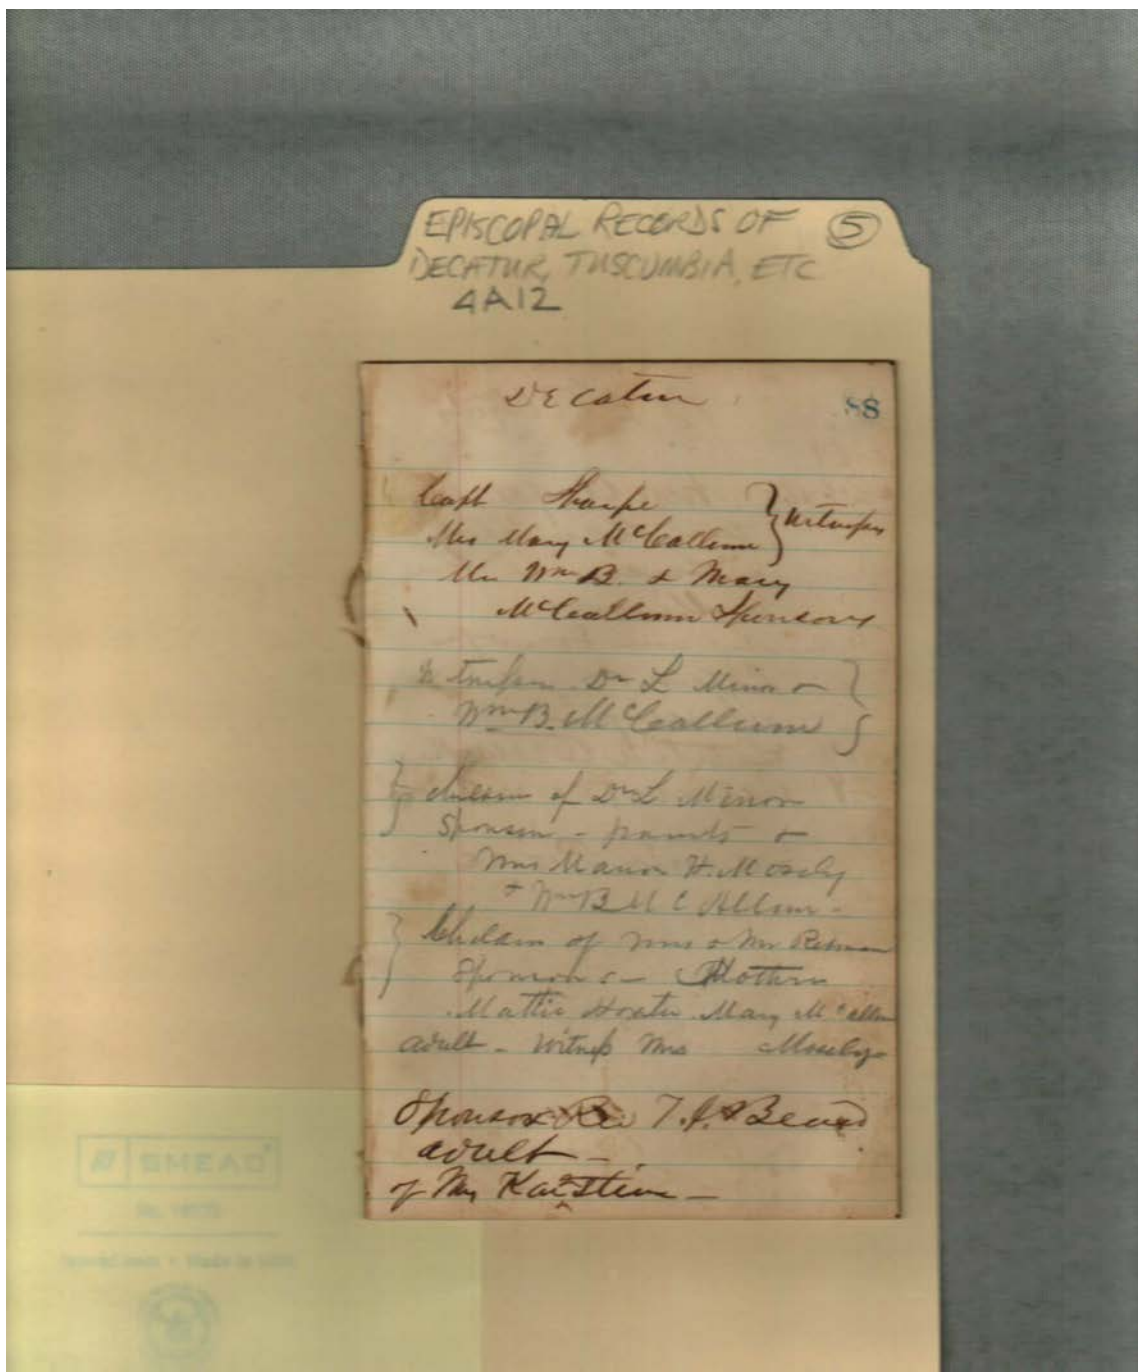 EPISCOPAL RECORDS OF 5
DECATUR, TUSCUMBIA, ETC
4A12
Decatur
88
Capt Sharpe
Witnesses
Mrs Mary McCallum
Mr Wm B. & Mary
McCallum Sponsors
Witnesses Dr L Minor &
Wm B. McCallum
children of Dr L Minor
Sponsors - parents &
Mrs H. Mosely
& Wm B McCallum -
Children of Mrs & Mr
Sponsors - Mother
Mattie Mary McCallum
adult - Witness Mrs Mosely
Sponsor T. J. Beard
adult -
of
SMEAD